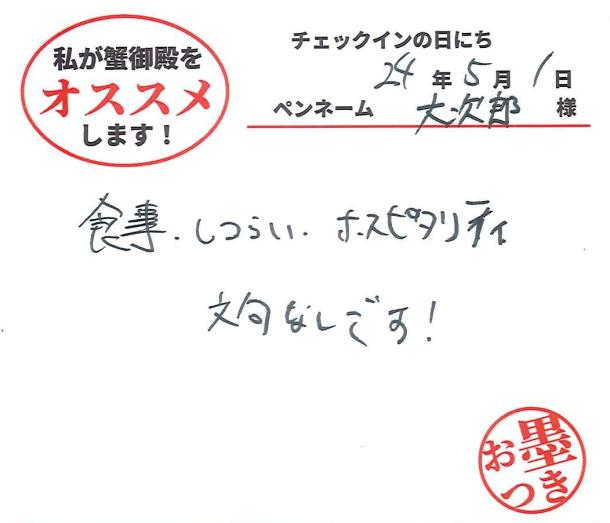 私が蟹御殿を
オススメ
します！
チェックインの日にち
24年5月1日
ペンネーム 大次郎 様
食事.しつらい.ホスピタリティ
文句なしです！
お墨
つき